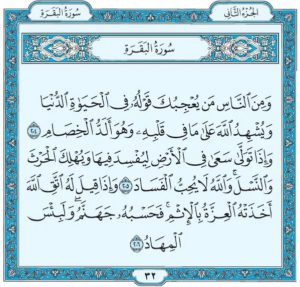 سُورَةُ البَقَرَةِ
الجُزْءُ الثَّانِي
سُورَةُ البَقَرَةِ
وَمِنَ النَّاسِ مَن يُعْجِبُكَ قَوْلُهُ فِي الْحَيَوٰةِ الدُّنْيَا
وَيُشْهِدُ اللَّهَ عَلَىٰ مَا فِي قَلْبِهِ وَهُوَ أَلَدُّ الْخِصَامِ ٢٤
وَإِذَا تَوَلَّىٰ سَعَىٰ فِي الْأَرْضِ لِيُفْسِدَ فِيهَا وَيُهْلِكَ الْحَرْثَ
وَالنَّسْلَ وَاللَّهُ لَا يُحِبُّ الْفَسَادَ ٢٥ وَإِذَا قِيلَ لَهُ اتَّقِ اللَّهَ
أَخَذَتْهُ الْعِزَّةُ بِالْإِثْمِ فَحَسْبُهُ جَهَنَّمُ وَلَبِئْسَ
الْمِهَادُ ٢٦
٣٢